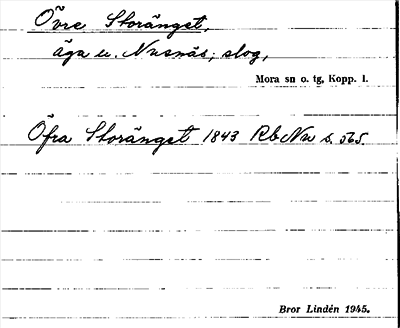 Övre Storänget,
äga u. Nusnäs; slog,
Mora sn o. tg, Kopp. l.
Öfra Storänget 1843 Rb Nu s. 565.
Bror Lindén 1945.